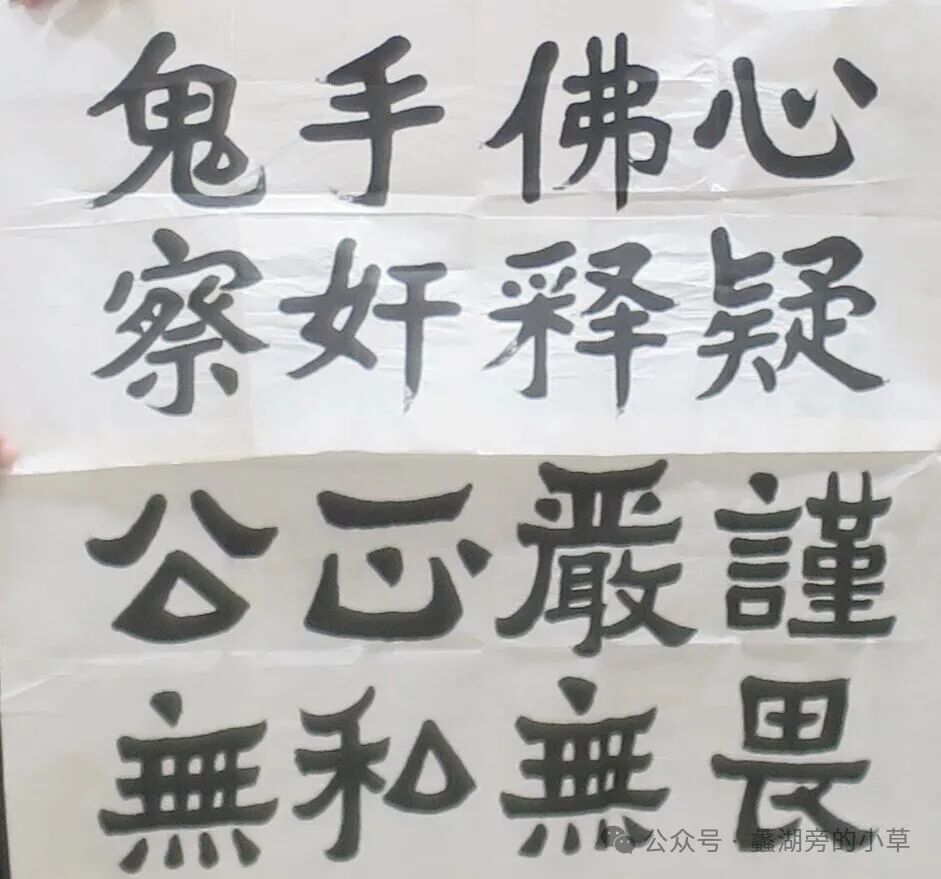 鬼手佛心
察奸释疑
公正嚴謹
無私無畏
公众号 · 蠡湖旁的小草